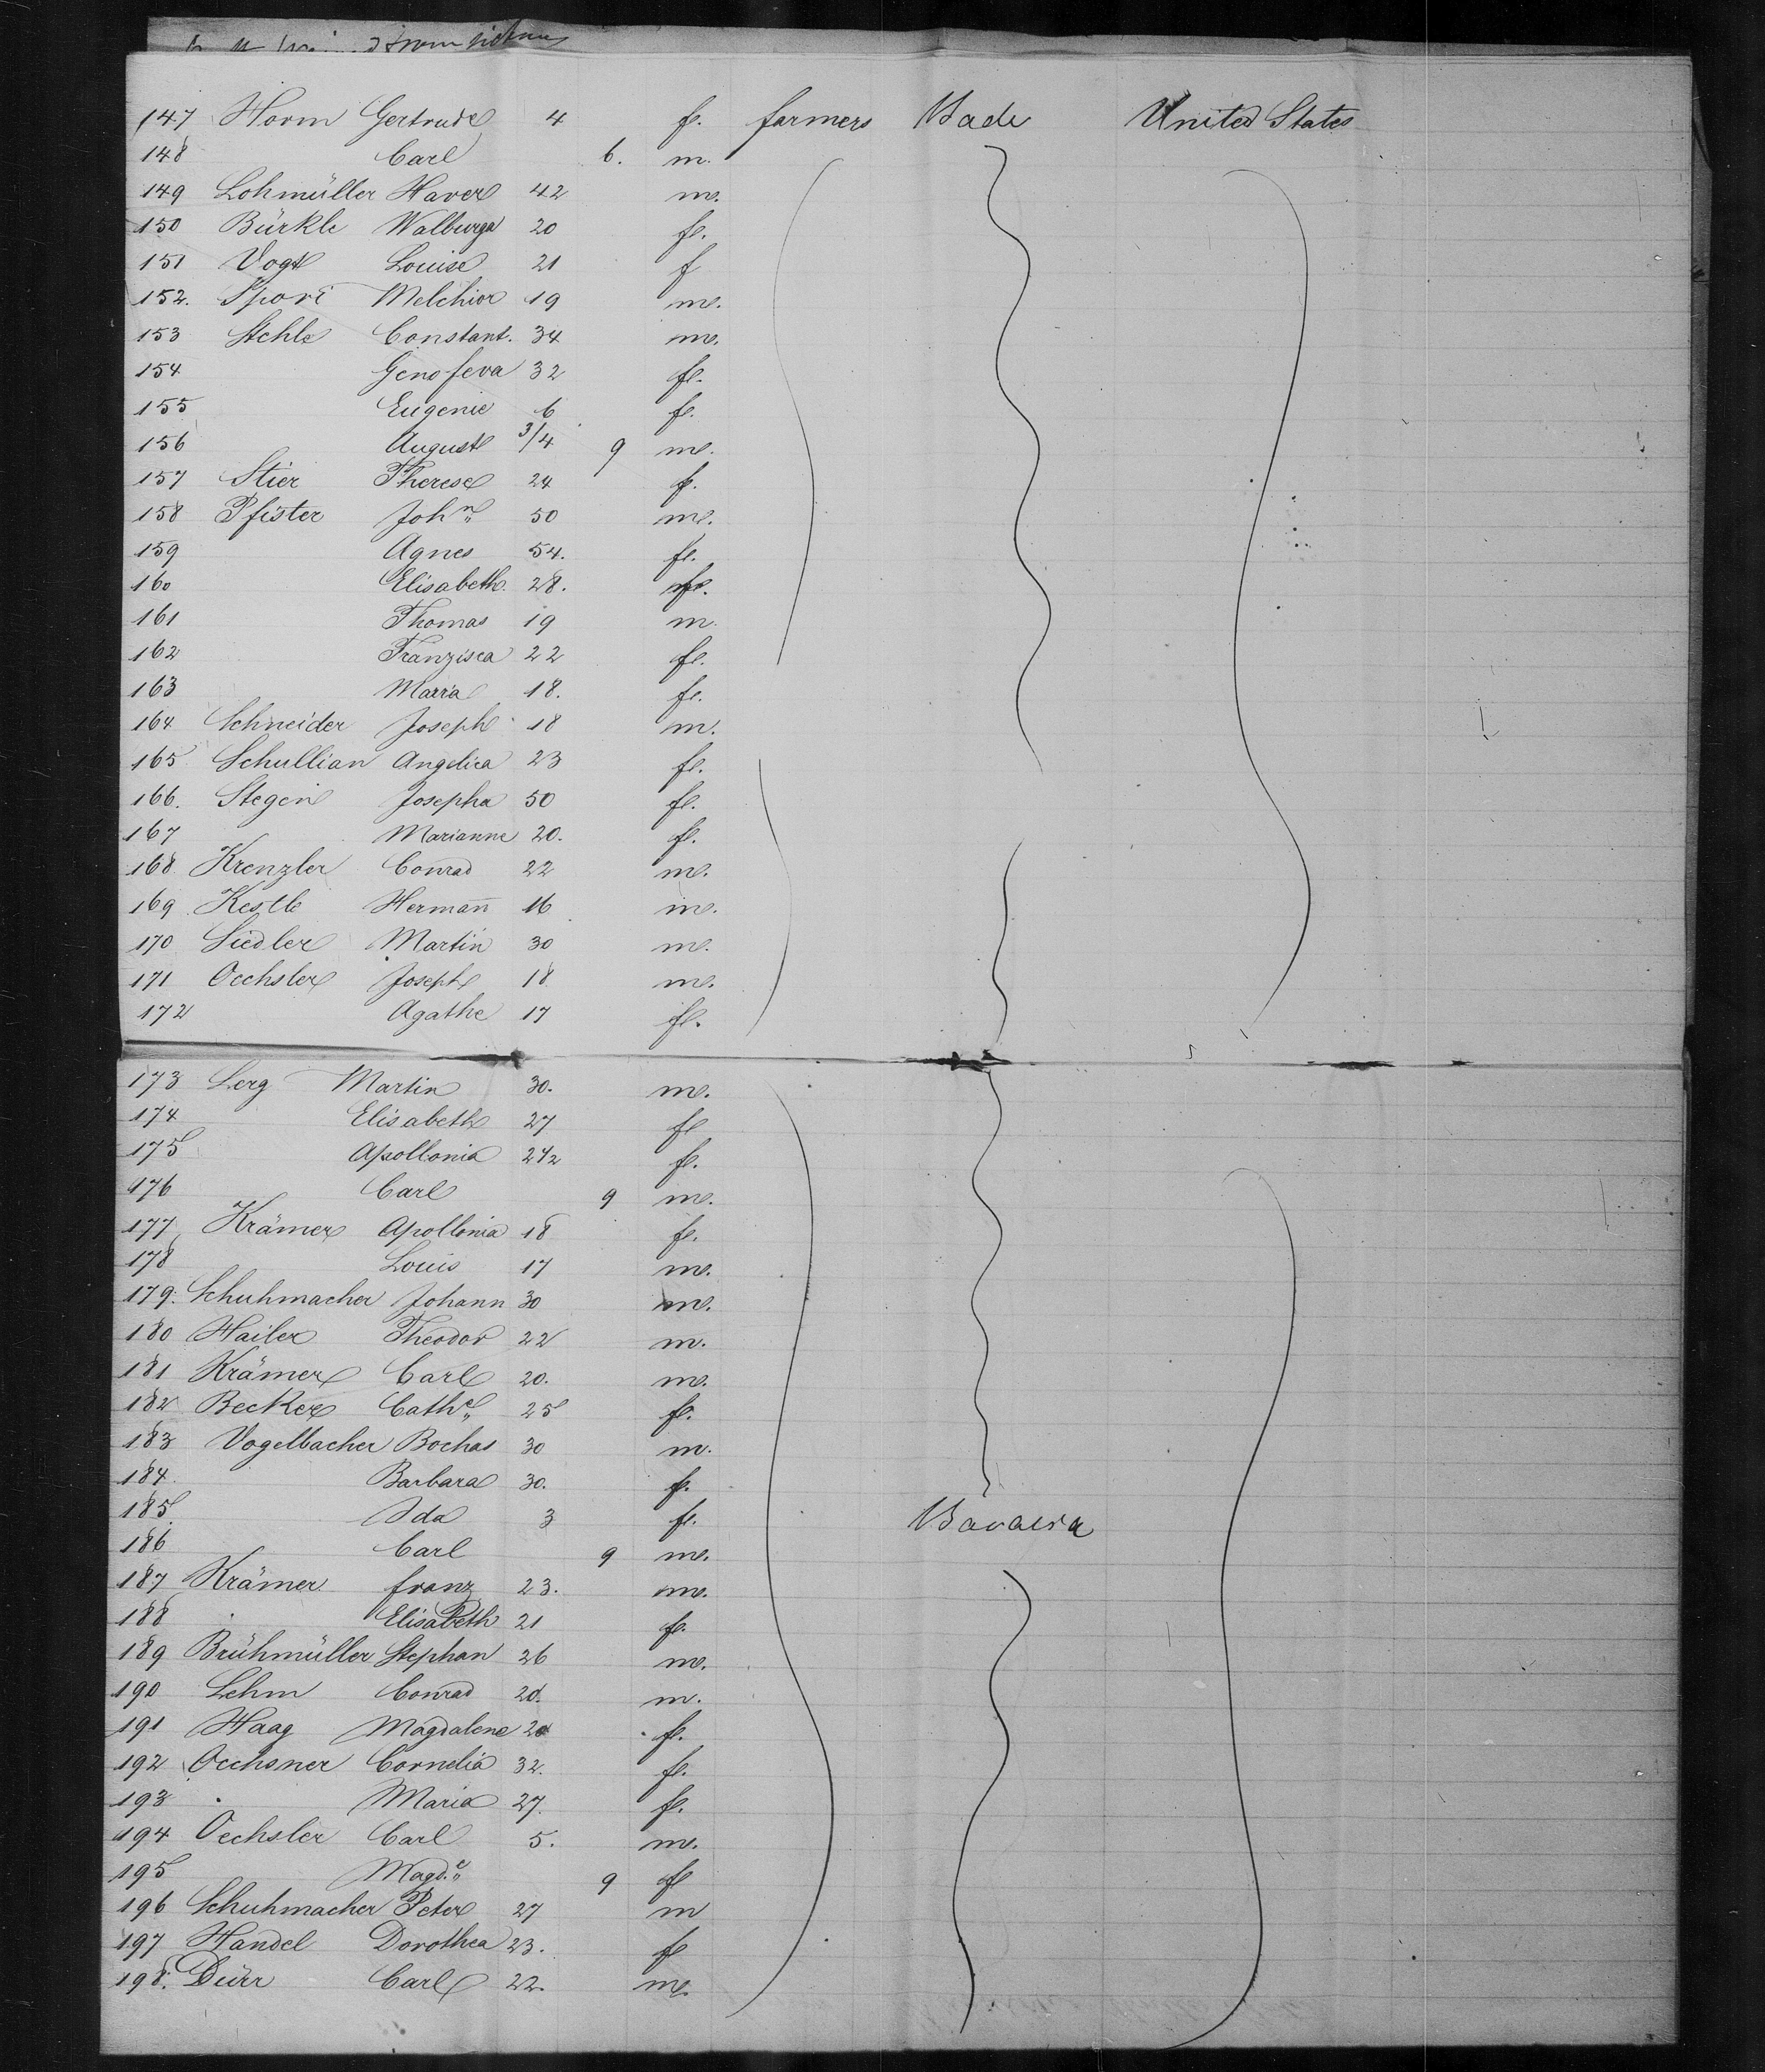 147 Horm Gertrude 4 fe. farmers Bade United States
148 Carl 6. m.
149 Lohmüller Xaver 42 m.
150 Bürkle Walburga 20 fe.
151 Vogt Louise 21 f
152. Spori Melchior 19 m.
153 Stehle Constant. 34 m.
154 Genofeva 32 fe.
155 Eugenie 6 fe.
156 August 3/4 9 m.
157 Stier Therese 24 fe.
158 Pfister Joh n 50 m.
159 Agnes 54. fe.
160 Elisabeth. 28. fe.
161 Thomas 19 m.
162 Franzisca 22 fe.
163 Maria 18. fe.
164 Schneider Joseph 18 m.
165 Schullian Angelica 23 fe.
166. Stegen Josepha 50 fe.
167 Marianne 20. fe.
168 Krenzler Conrad 22 m.
169 Kestle Hermañ 16 m.
170 Siedler Martin 30 m.
171 Oechsler Joseph 18 m.
172 Agathe 17 fe.
173 Lerg Martin 30. m.
174 Elisabeth 27 fe
175 Apollonia 2 1/2 fe.
176 Carl 9 m.
177 Krämer Apollonia 18 fe.
178 Louis 17 m.
179. Schuhmacher Johann 30 m.
180 Hailer Theodor 22 m.
181 Krämer Carl 20. m.
182 Becker Cath e 25 fe.
183 Vogelbacher Bochas 30 m.
184 Barbara 30. fe.
185. Ida 3 fe. Bavaria
186 Carl 9 m.
187 Krämer franz 23. m.
188 Elisabeth 21 fe.
189 Brühmüller Stephan 26 m.
190 Lehm Conrad 20. m.
191 Haag Magdalene 20 fe.
192 Oechsner Cornelia 32. fe.
193 Maria 27. fe.
194 Oechsler Carl 5. m.
195 Magd. e 9 fe
196 Schuhmacher Peter 27 m
197 Handel Dorothea 23. fe
198. Dürr Carl 22. m.